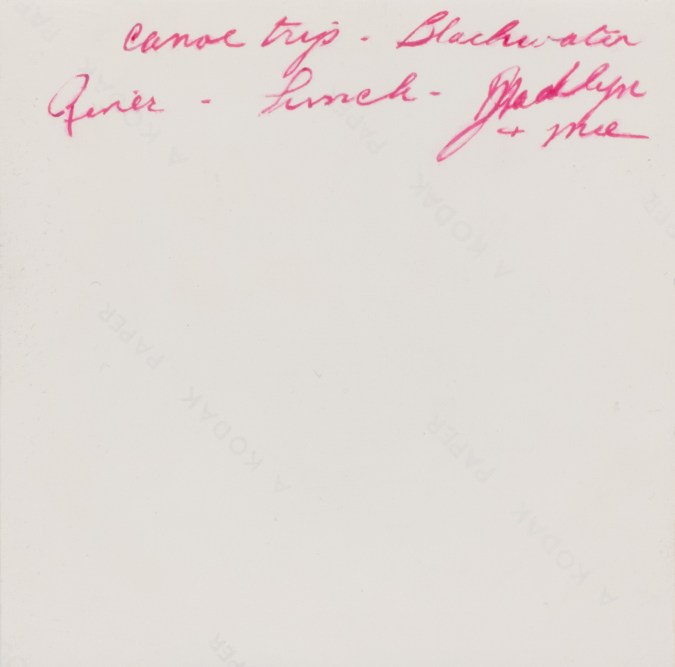 canoe trip - Blackwater
River - Lunch - Madlyn
+ me
A KODAK PAPER
A KODAK PAPER
A KODAK PAPER
A KODAK PAPER
PAPER